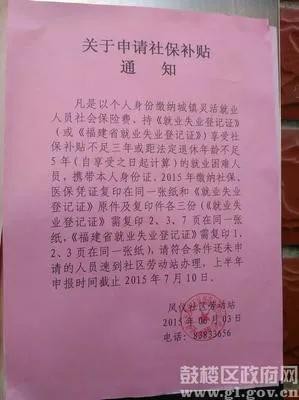 关于申请社保补贴
通  知
凡是以个人身份缴纳城镇灵活就业
人员社会保险费、持《就业失业登记证》
（或《福建省就业失业登记证》）享受社保
补贴不足三年或距法定退休年龄不足
5年（自享受之日起计算）的就业困难人
员，携带本人身份证、2015年缴纳社保、
医保凭证复印在同一张纸和《就业失业
登记证》原件及复印件各三份（《就业失
业登记证》需复印2、3、7页在同一张
纸，《福建省就业失业登记证》需复印1、
2、3页在同一张纸），请符合条件还未申
请的人员速到社区劳动站办理，上半年
申报时间截止2015年7月10日。
凤仪社区劳动站
2015年06月03日
电话：83833656
鼓楼区政府网
www.gl.gov.cn